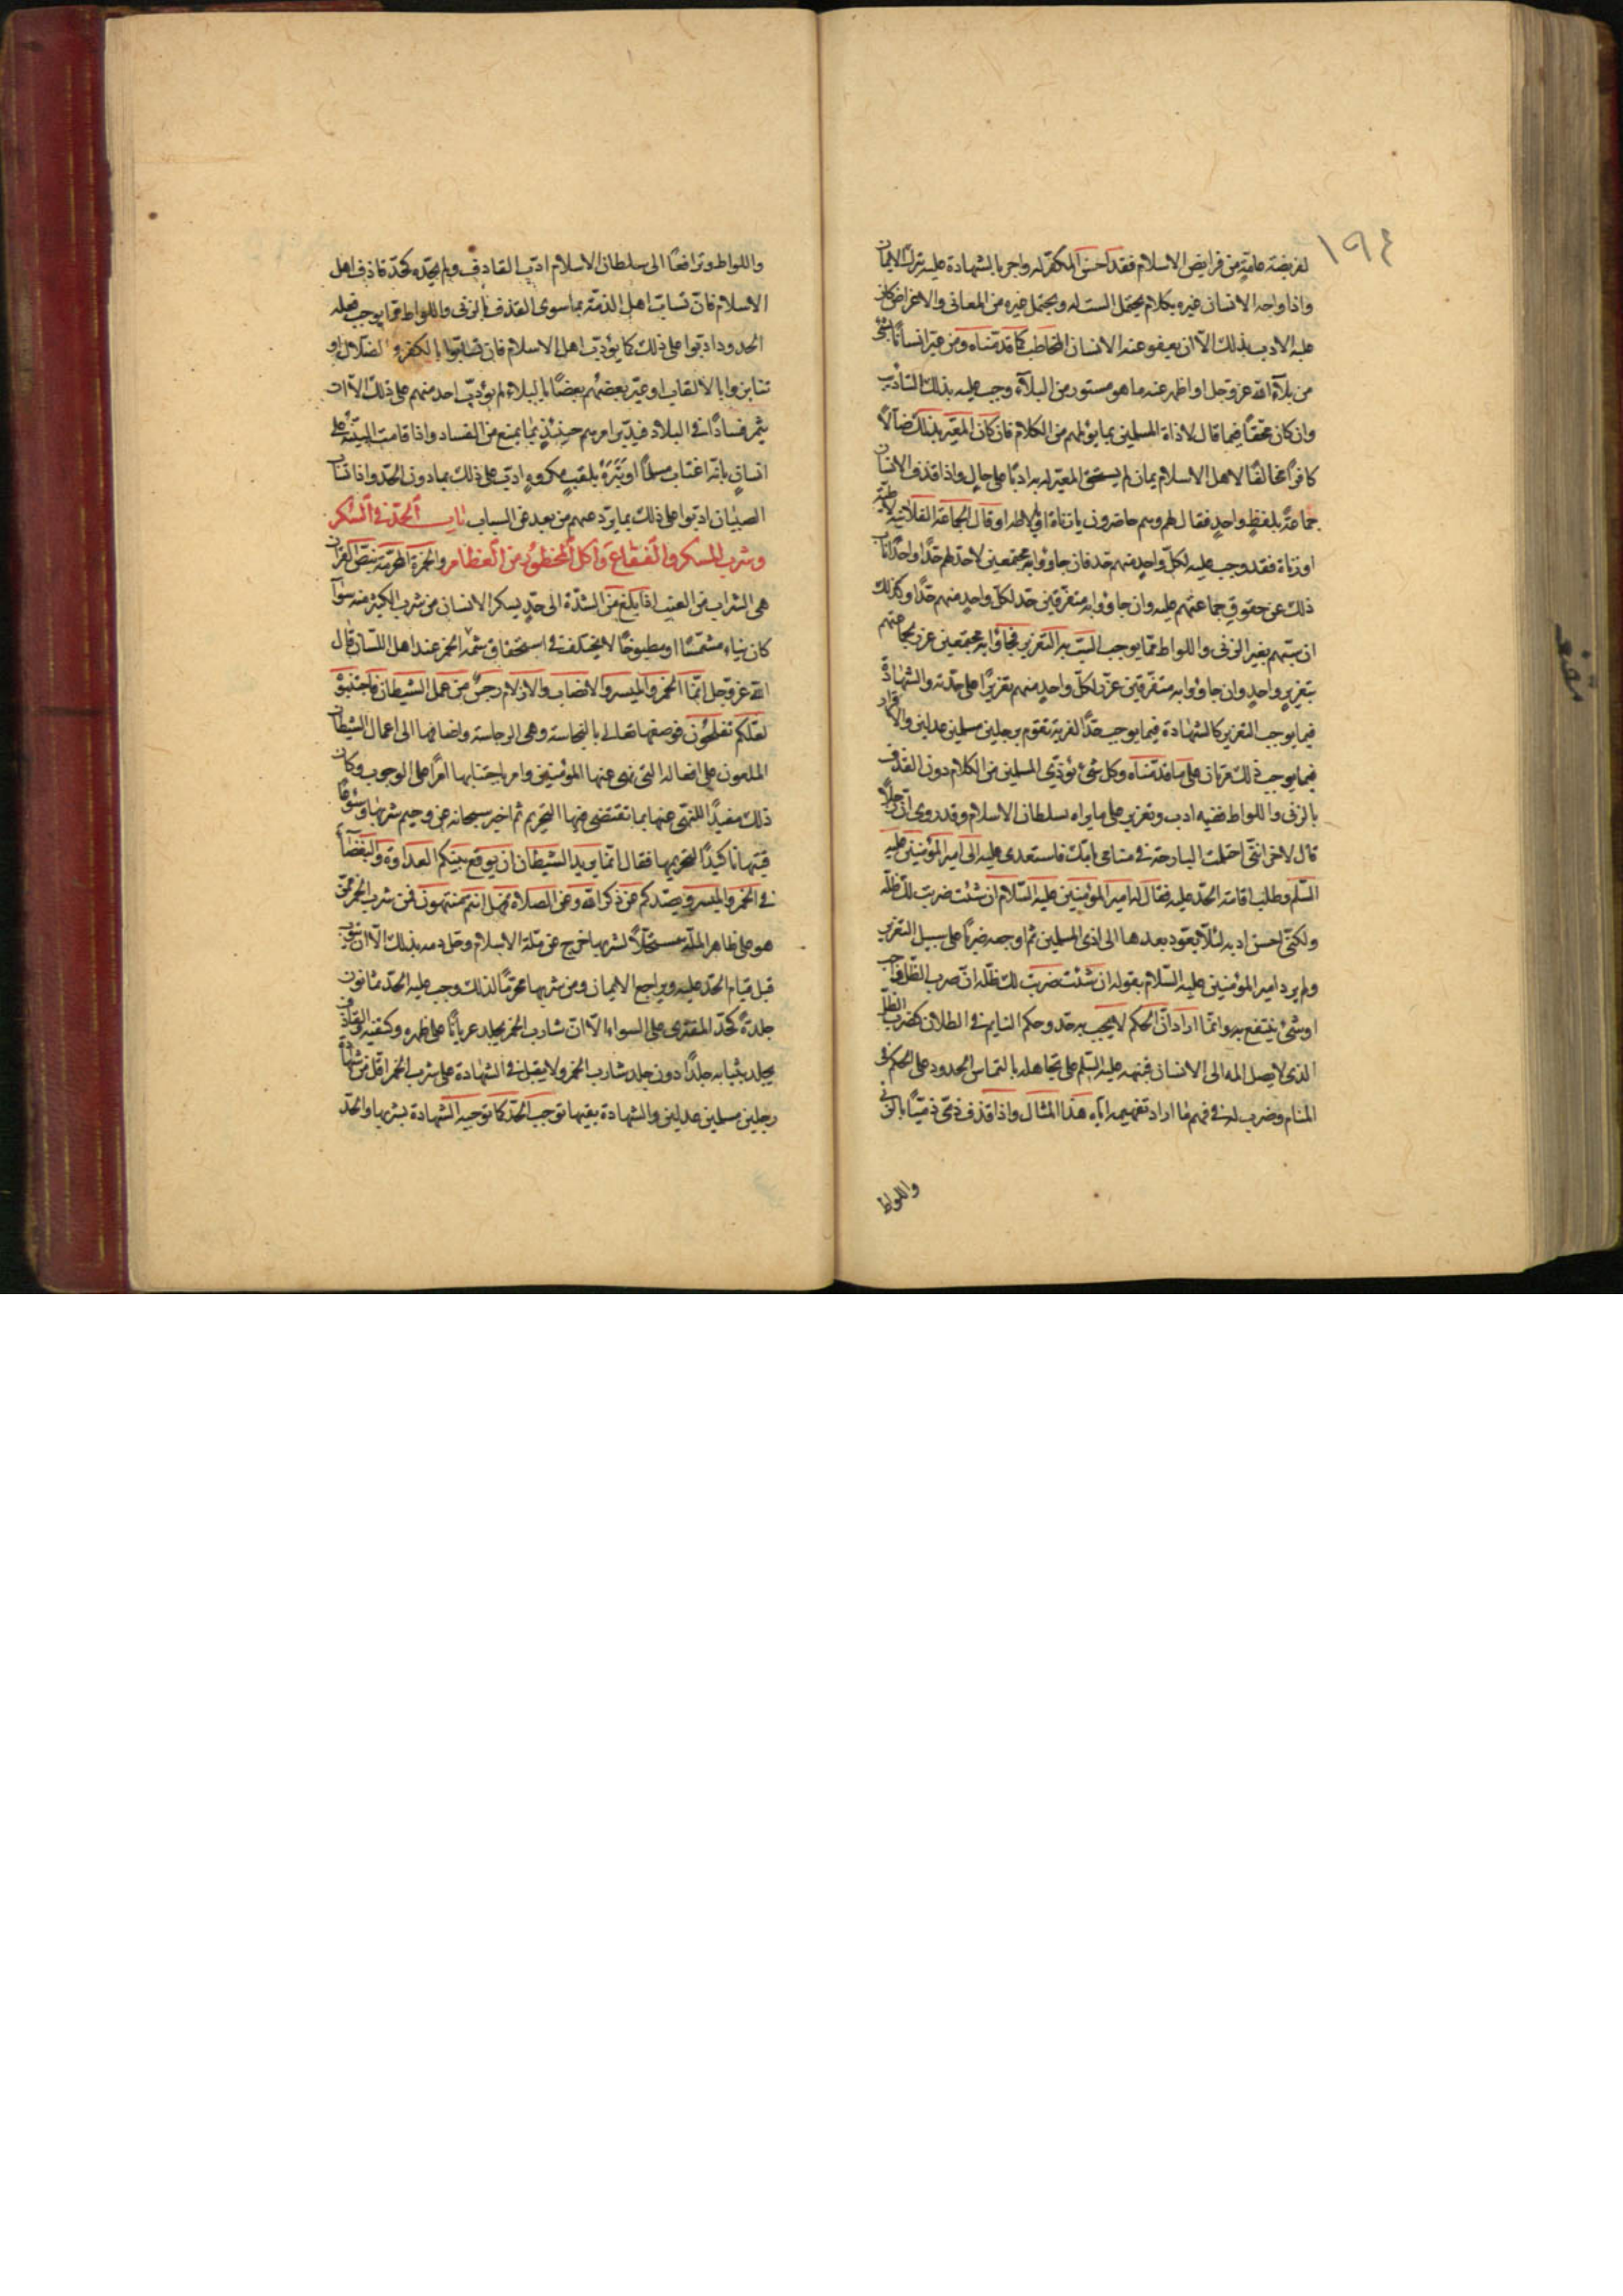 ١٩٤
لفريضة عامة من فرايض الاسلام فقد احسن المكفر له واجر بالشهادة عليه بترك الايمان
واذا واجه الانسان غيره بكلام يحتمل السب له ويحتمل غيره من المعاني والاغراض كان
عليه الادب بذلك الا ان يعفو عنه الانسان المخاطب كما قدمناه ومن عير انسانا بشئ
من بلاء الله عز وجل او اظهر عنه ما هو مستور من البلاء وجب عليه بذلك التاديب
وان كان محقا فيما قال لاذاة المسلمين بما يؤلمهم من الكلام فان كان المعير بذلك ضالا
كافرا مخالفا لاهل الاسلام بمان لم يستحق المعير له به ادبا على حال واذا قذف الانسان
جماعة بلفظ واحد فقال لهم وهم حاضرون يا زناة او يا لاطه او قال الجماعة الفلانية لاطة
او زناة فقد وجب عليه لكل واحد منهم حد فان جاؤا به مجتمعين لاحد لهم حدا واحدا ناب
ذلك عن حقوق جماعتهم عليه وان جاؤا به متفرقين حد لكل واحد منهم حدا وكذلك
ان سبهم بغير الزنى واللواط مما يوجب السب به التعزير فجاؤا به مجتمعين عزر لجماعتهم
بتعزير واحد وان جاؤا به متفرقين عزر لكل واحد منهم تعزيرا على حدته والشهادة
فيما يوجب التعزير كالشهادة فيما يوجب حد الفرية تقوم برجلين مسلمين عدلين والاقرار
فيما يوجب ذلك مرتان على ما قدمناه وكل شئ يؤذي المسلمين من الكلام دون القذف
بالزنى واللواط ففيه ادب وتعزير على ما يراه سلطان الاسلام وقد روي ان رجلا
قال لاخر انني احتلمت البارحة في منامي بامك فاستعدى عليه الى امير المؤمنين عليه
السلم وطلب اقامة الحد عليه فقال له امير المؤمنين عليه السلام ان شئت ضربت لك ظله
ولكني احسن ادبه لئلا يعود بعدها الى اذى المسلمين ثم اوجعه ضربا على سبيل التعزير
ولم يرد امير المؤمنين عليه السلام بقوله ان شئت ضربت لك ظله ان ضرب الظل واجب
او شئ ينتفع به وانما اراد ان الحكم لا يجب به حد وحكم النايم في البطلان كضرب الظل
الذي لا يصل المه الى الانسان فنبهه عليه السلم على تجاهله بالتماس الحدود على الحكم في
المنام وضرب له في فهم ما اراد تفهيمه اياه هذا المثال واذا قذف ذمي ذميا بالزنى
واللواط
واللواط وترافعا الى سلطان الاسلام ادب القاذف ولم يحده كحد قاذف اهل
الاسلام فان تساب اهل الذمة بما سوى القذف بالزنى واللواط مما يوجب فعله
الحدود ادبوا على ذلك كما يؤدب اهل الاسلام فان تسابوا بالكفر والضلال او
تنابزوا بالالقاب او عير بعضهم بعضا بالبلاء لم يؤدب احد منهم على ذلك الا ان
يثمر فسادا في البلاد فيدبر امرهم حينئذ بما يمنع من الفساد واذا قامت البينة على
انسان بانه اغتاب مسلما او نبزه بلقب مكروه ادب على ذلك بما دون الحد واذا تساب
الصبيان ادبوا على ذلك بما يردعهم من بعد عن السباب باب الحد في السكر
وشرب المسكر والفقاع واكل المحظور من الطعام والخمرة المحرمة بنص القران
هي الشراب من العنب اذا بلغ من الشدة الى حد يسكر الانسان من شرب الكثير منه سواء
كان نياء مشمسا او مطبوخا لا يختلف في استحقاق سمة الخمر عند اهل اللسان قال
الله عز وجل انما الخمر والميسر والانصاب والازلام رجس من عمل الشيطان فاجتنبوه
لعلكم تفلحون فوصفها تعالى بالنجاسة وهي الرجاسة واضافها الى اعمال الشيطان
الملعون على افعاله التي نهى عنها المؤمنين وامر باجتنابها امرا على الوجوب وكان
ذلك مفيدا للنهي عنها بما تقتضي منها التحريم ثم اخبر سبحانه عن وخيم شربها وسوء
فيتها تاكيدا لتحريمها فقال انما يريد الشيطان ان يوقع بينكم العداوة والبغضاء
في الخمر والميسر ويصدكم عن ذكر الله وعن الصلاة فهل انتم منتهون فمن شرب الخمر ممن
هو على ظاهر الملة مستحلا لشربها خرج عن ملة الاسلام وحل دمه بذلك الا ان يتوب
قبل قيام الحد عليه ويراجع الايمان ومن شربها محرما لذلك وجب عليه الحد ثمانون
جلدة كحد المفتري على السواء الا ان شارب الخمر يجلد عريانا على ظهره وكتفيه والقاذف
يجلد بثيابه جلدا دون جلد شارب الخمر ولا يقبل في الشهادة على شرب الخمر اقل من شهادة
رجلين مسلمين عدلين والشهادة بقيئها توجب الحد كما توجبه الشهادة بشربها والحد
مقنعه